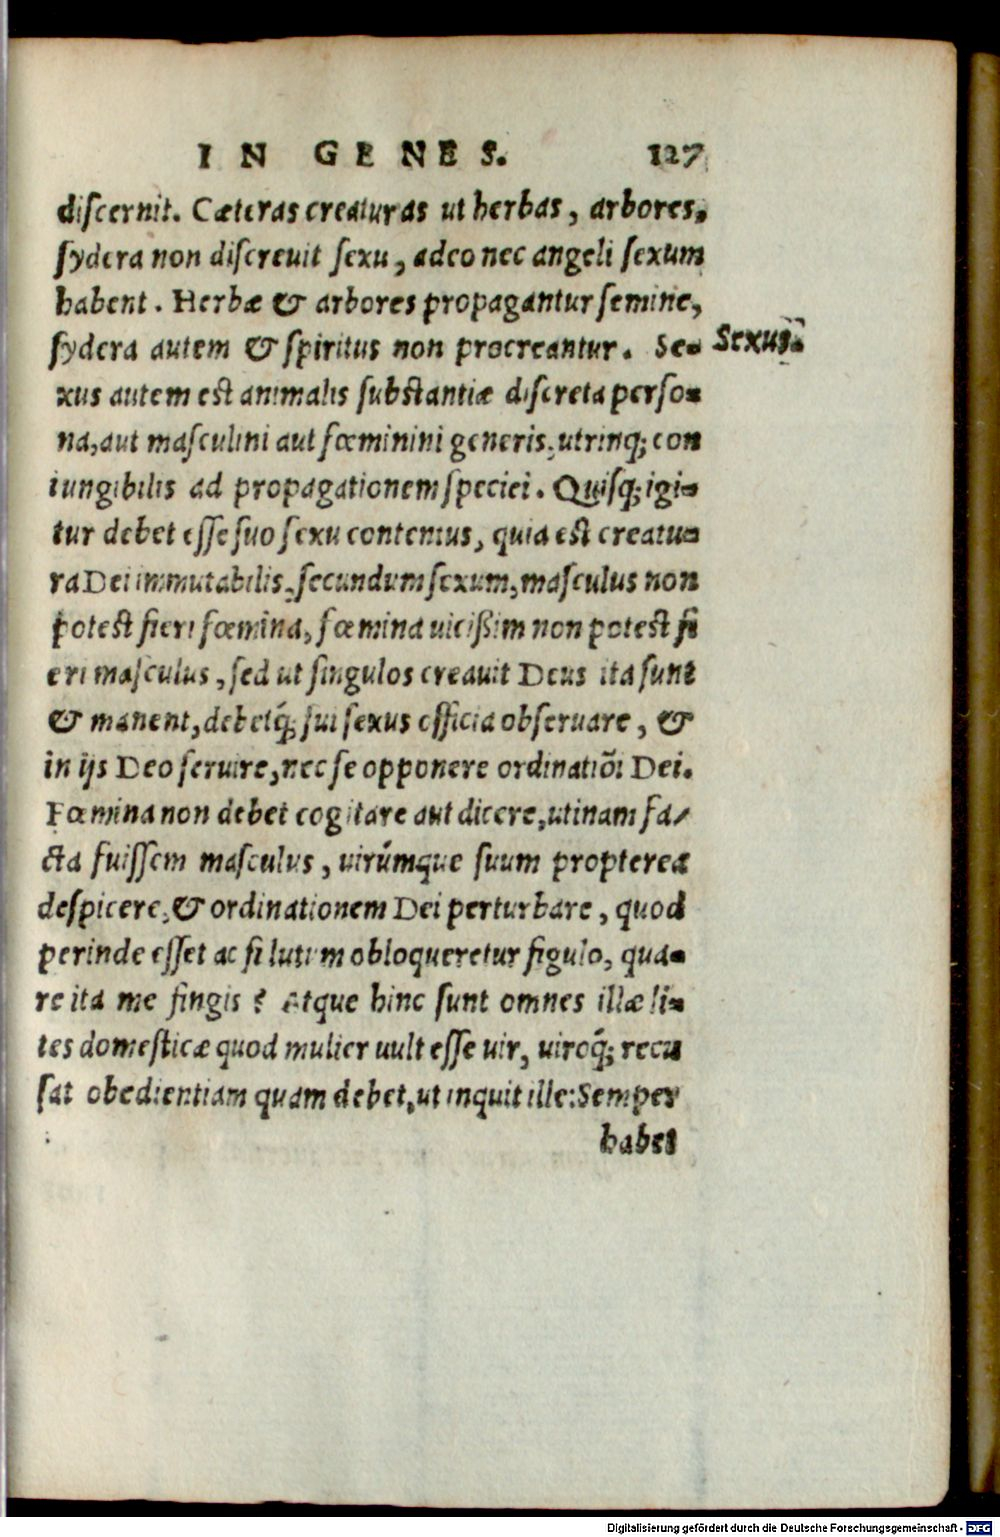 IN GENES. 127
discernit. Cæteras creaturas ut herbas, arbores,
sydera non discreuit sexu, adeo nec angeli sexum
habent. Herbæ & arbores propagantur semine,
sydera autem & spiritus non procreantur. Se-
Sexus.
xus autem est animalis substantiæ discreta perso-
na, aut masculini aut fœminini generis, utrinq; con
iungibilis ad propagationem speciei. Quisq; igi-
tur debet esse suo sexu contentus, quia est creatu-
ra Dei immutabilis, secundum sexum, masculus non
potest fieri fœmina, fœmina uicißim non potest fi
eri masculus, sed ut singulos creauit Deus ita sunt
& manent, debetq́; sui sexus officia obseruare, &
in ijs Deo seruire, nec se opponere ordinatiõi Dei.
Fœmina non debet cogitare aut dicere, utinam fa-
cta fuissem masculus, uirúmque suum propterea
despicere, & ordinationem Dei perturbare, quod
perinde esset ac si lutum obloqueretur figulo, qua-
re ita me fingis? Atque hinc sunt omnes illæ li-
tes domesticæ quod mulier uult esse uir, uiroq́; recu
sat obedientiam quam debet, ut inquit ille: Semper
habet
Digitalisierung gefördert durch die Deutsche Forschungsgemeinschaft - DFG